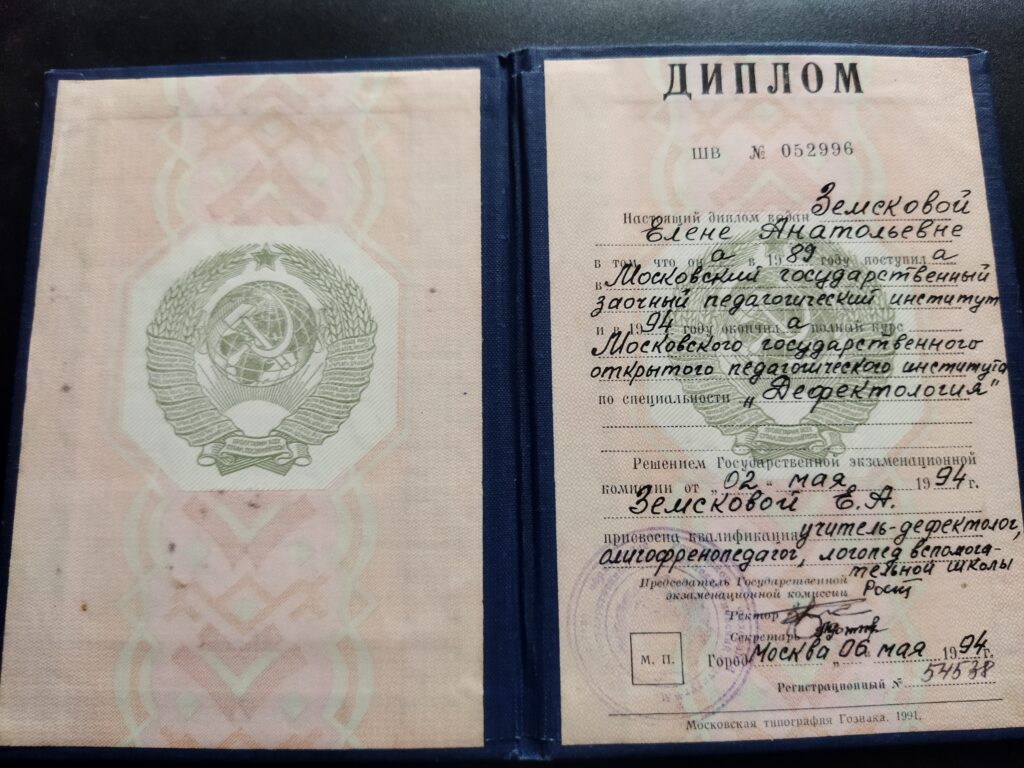 ДИПЛОМ
ШВ № 052996
Настоящий диплом выдан Земсковой
Елене Анатольевне
в том, что он а в 1989 году поступил а
в Московский государственный
заочный педагогический институт
и в 1994 году окончил а полный курс
Московского государственного
открытого педагогического института
по специальности „Дефектология"
Решением Государственной экзаменационной
комиссии от „02" мая 1994 г.
Земсковой Е.А.
присвоена квалификация учитель-дефектолог,
олигофренопедагог, логопед вспомога-
тельной школы
Председатель Государственной
экзаменационной комиссии Рост
Ректор
Секретарь
М. П.
Город Москва „06" мая 1994 г.
Регистрационный № 54538
Московская типография Гознака. 1991.